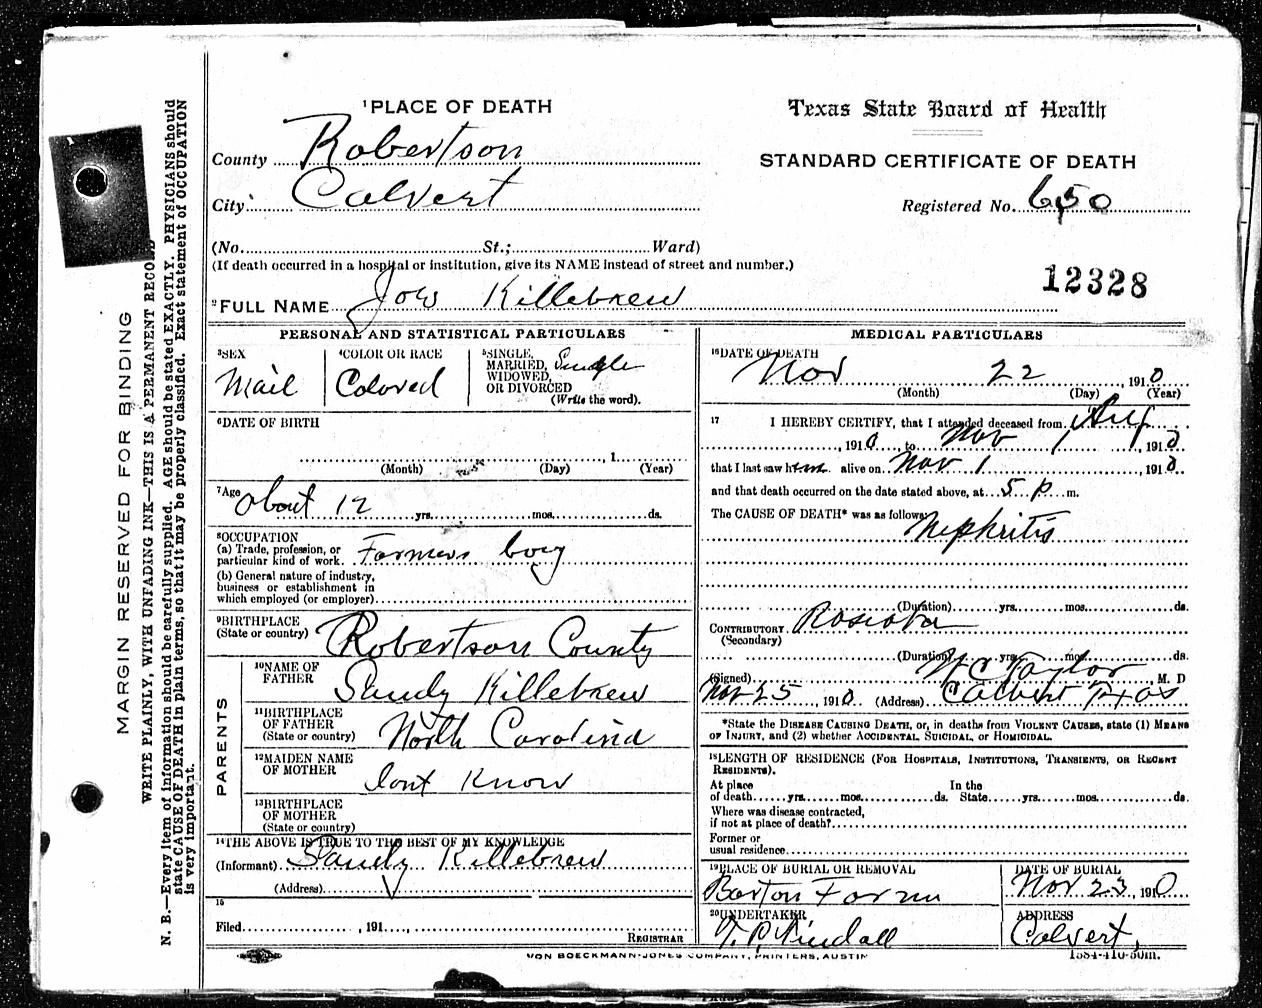 MARGIN RESERVED FOR BINDING
WRITE PLAINLY, WITH UNFADING INK—THIS IS A PERMANENT RECORD
N. B.—Every item of information should be carefully supplied. AGE should be stated EXACTLY. PHYSICIANS should
state CAUSE OF DEATH in plain terms, so that it may be properly classified. Exact statement of OCCUPATION
is very important.
1 PLACE OF DEATH
County Robertson
City Calvert
(No. St.; Ward)
(If death occurred in a hospital or institution, give its NAME instead of street and number.)
Texas State Board of Health
STANDARD CERTIFICATE OF DEATH
Registered No. 650
12328
2 FULL NAME Killebrew
PERSONAL AND STATISTICAL PARTICULARS
3 SEX
Mail
4 COLOR OR RACE
Colored
5 SINGLE,
MARRIED,
WIDOWED,
OR DIVORCED
(Write the word).
Single
6 DATE OF BIRTH
, 1
(Month) (Day) (Year)
7 Age
about 12 yrs. mos. ds.
8 OCCUPATION
(a) Trade, profession, or
particular kind of work. Farmers boy
(b) General nature of industry,
business or establishment in
which employed (or employer)
9 BIRTHPLACE
(State or country) Robertson County
PARENTS
10 NAME OF
FATHER Sandy Killebrew
11 BIRTHPLACE
OF FATHER
(State or country) North Carolina
12 MAIDEN NAME
OF MOTHER dont Know
13 BIRTHPLACE
OF MOTHER
(State or country)
14 THE ABOVE IS TRUE TO THE BEST OF MY KNOWLEDGE
(Informant) Sandy Killebrew
(Address)
15
Filed , 191
REGISTRAR
MEDICAL PARTICULARS
16 DATE OF DEATH
Nov 22 , 1910
(Month) (Day) (Year)
17 I HEREBY CERTIFY, that I attended deceased from
, 1910 to Nov 1 , 1910
that I last saw him alive on Nov 1 1910
and that death occurred on the date stated above, at 5 p m.
The CAUSE OF DEATH* was as follows:
Nephritis
(Duration) yrs. mos. ds.
CONTRIBUTORY
(Secondary)
(Duration) yrs. mos. ds.
(Signed) W C Taylor M. D
Nov 25 , 1910 (Address) Calvert Texas
*State the DISEASE CAUSING DEATH, or, in deaths from VIOLENT CAUSES, state (1) MEANS
OF INJURY, and (2) whether ACCIDENTAL, SUICIDAL, OR HOMICIDAL.
18 LENGTH OF RESIDENCE (FOR HOSPITALS, INSTITUTIONS, TRANSIENTS, OR RECENT
RESIDENTS).
At place In the
of death yrs. mos. ds. State yrs. mos. ds.
Where was disease contracted,
if not at place of death?
Former or
usual residence
19 PLACE OF BURIAL OR REMOVAL
Barton Farm
DATE OF BURIAL
Nov 23, 1910
20 UNDERTAKER
T. P. Kindall
ADDRESS
Calvert,
VON BOECKMANN-JONES COMPANY, PRINTERS, AUSTIN
1584-410-50m.